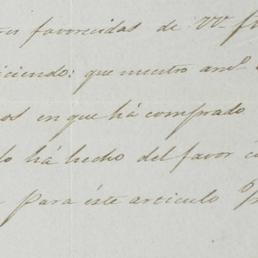 favorecidas de VV.
iciendo: que nuestro am.º
os en que há comprado
lo há hecho del favor
para éste articulo